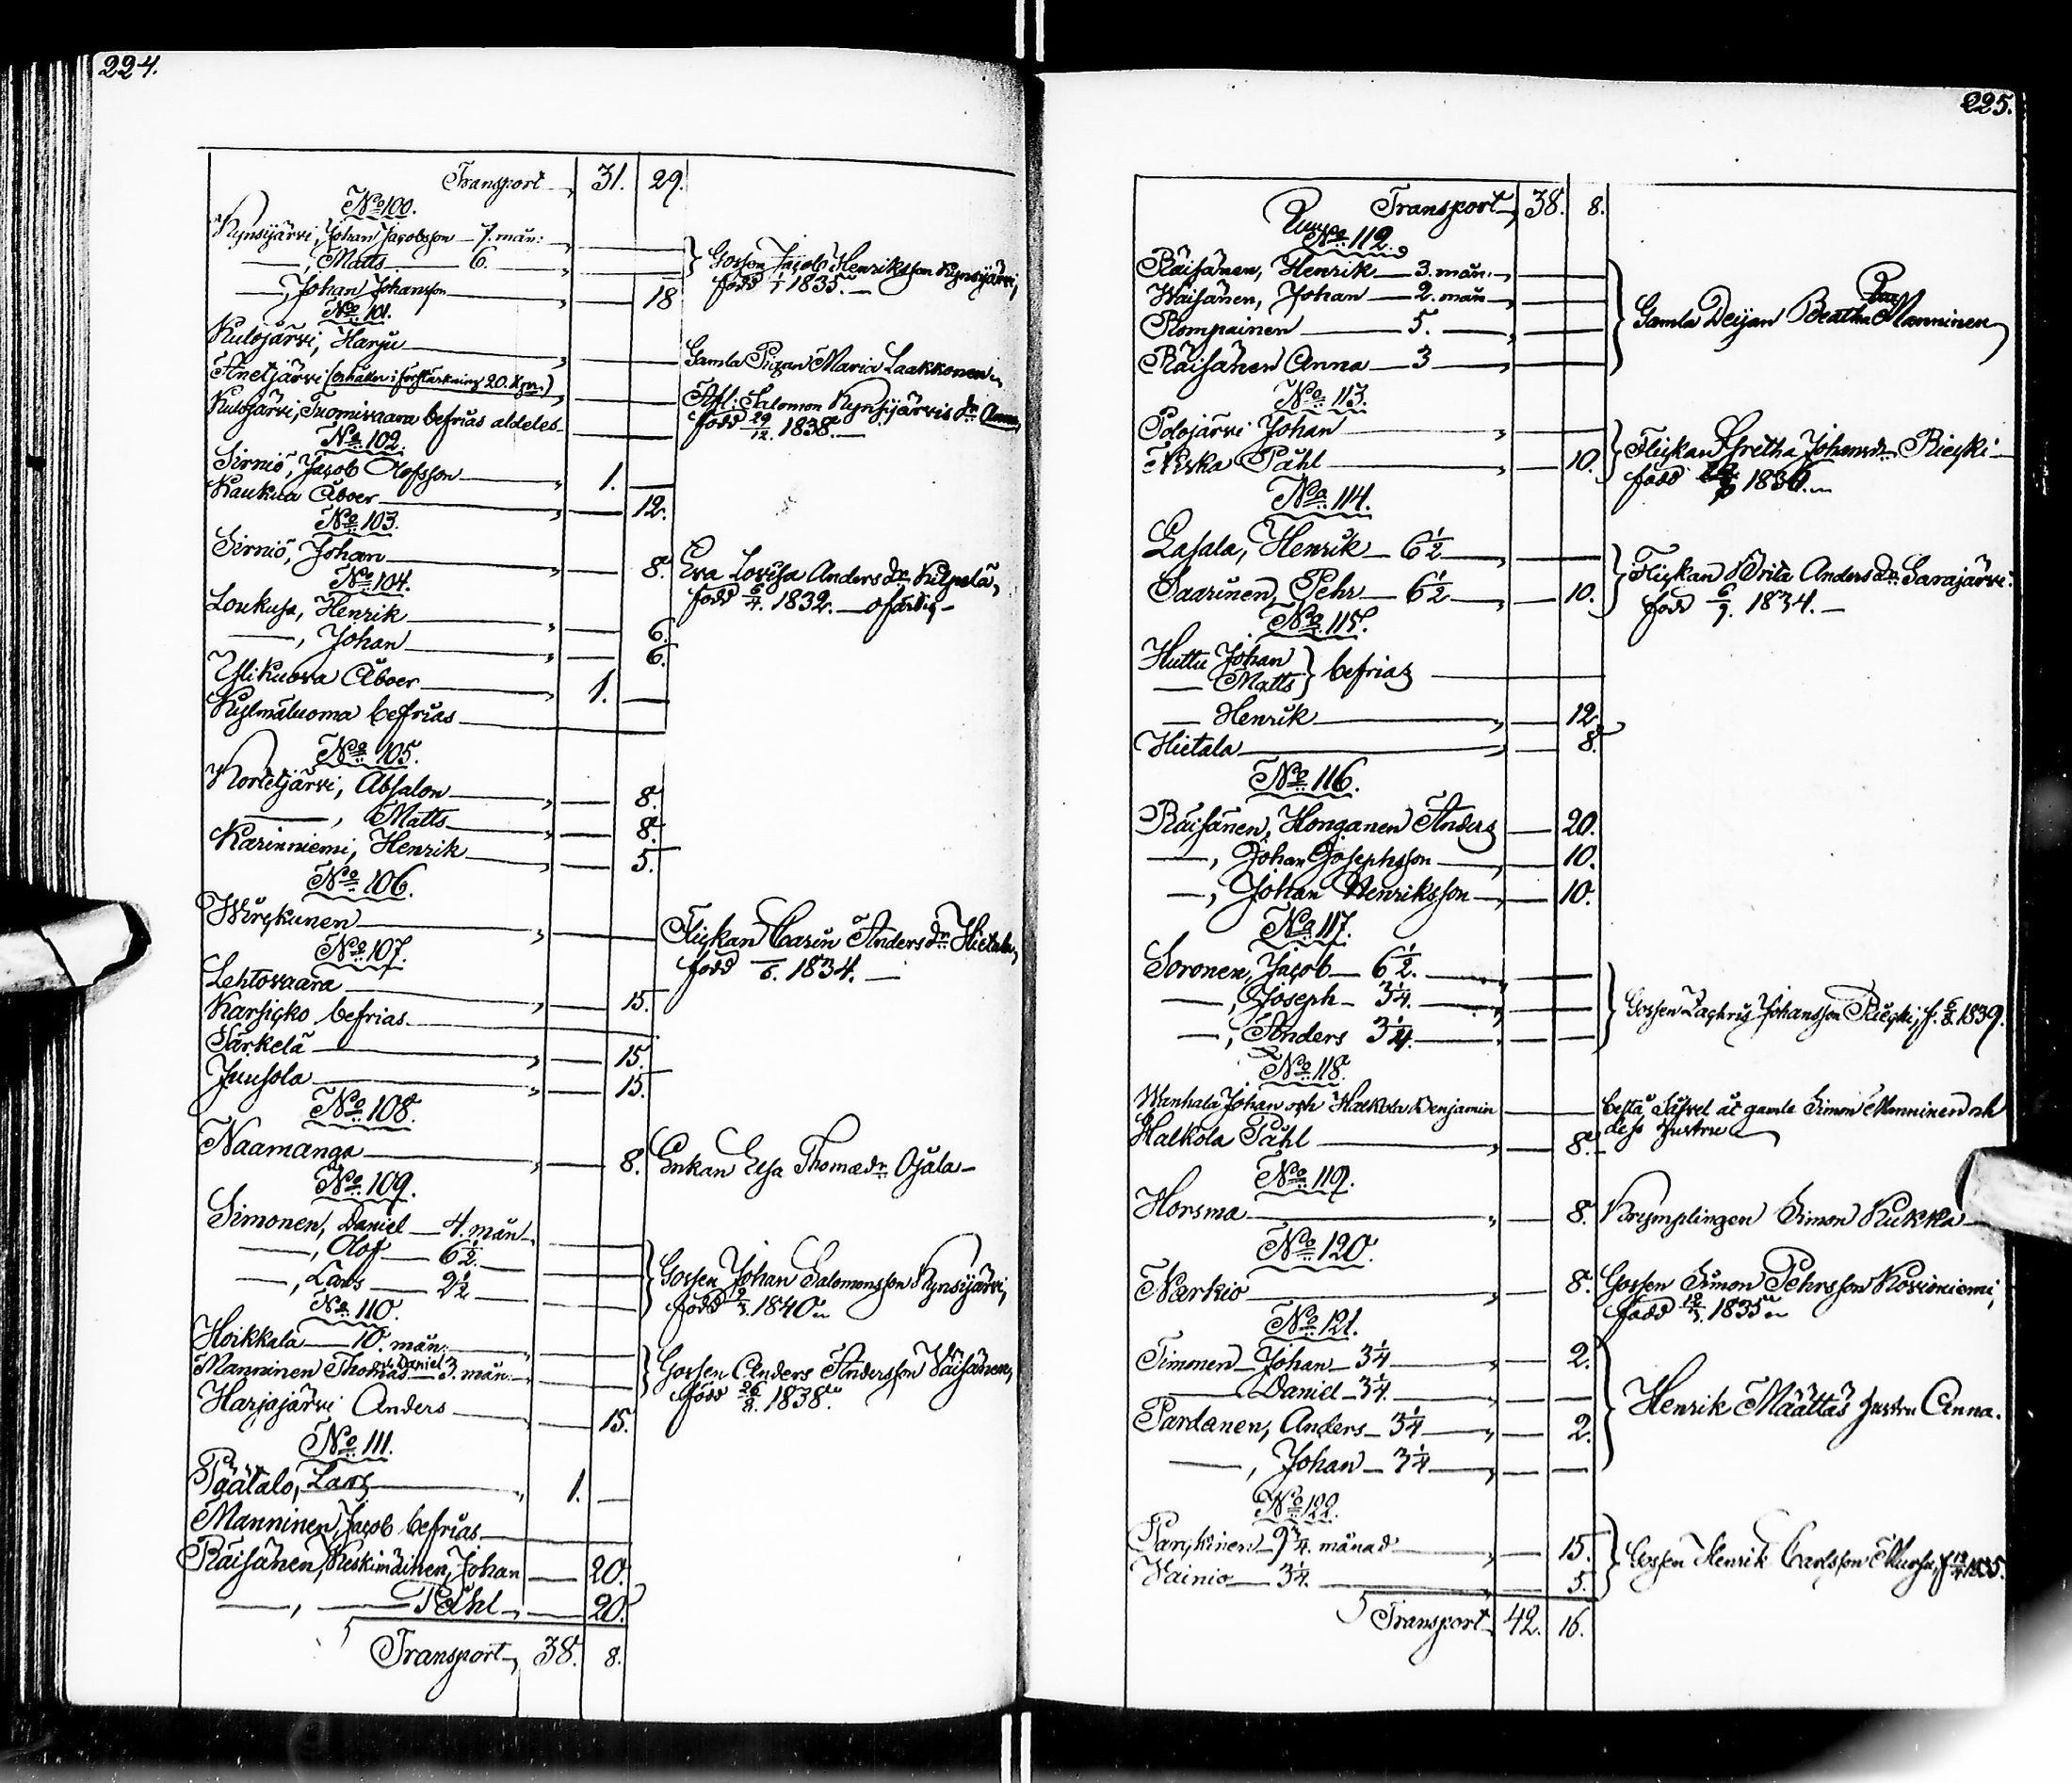 224.
Transport 31. 29.
No 100.
Kynsijärvi, Johan Jacobsson 7. mån:
—, Matts 6.
—, Johan Johansson 18
Gossen Jacob Henriksson Kynsijärvi,
född 1835.
No 101.
Kulojärvi, Harju
Gamla Pigan Maria Laakkonen
Anetjärvi (erhåller i förstärkning 20. Kpr.)
Afl: Salomon Kynsijärvis dr Anna,
född 29/12. 1838.
Kulojärvi, Tuomivaara befrias aldeles
No 102.
Sirniö, Jacob Olofsson 1.
Kaukua Åboer 12.
No 103.
Sirniö, Johan 8.
Eva Lovisa Anders dr Kilpelä,
född 6/4. 1832. ofärdig
No 104.
Loukusa, Henrik 6.
—, Johan 6.
Ylikuora Åboer 1.
Kylmäluoma befrias
No 105.
Kortetjärvi, Absalon 8.
—, Matts 8.
Karinniemi, Henrik 5.
No 106.
Wirkkunen
Flickan Carin Anders dr Hietala,
född —/6. 1834.
No 107.
Lehtovaara 15.
Karsikko befrias
Särkelä 15.
Juusola 15.
No 108.
Naamanga 8.
Enkan Elsa Thomædr Ojala
No 109.
Simonen, Daniel 4. mån
—, Olof 6½.
—, Lars 2½
Gossen Johan Salomonsson Kynsijärvi,
född 1840
No 110.
Hoikkala 10. mån:
Manninen Thomas och Daniel 3. mån:
Gossen Anders Andersson Väisänen,
född 26/8. 1838.
Harjajärvi Anders 15.
No 111.
Päätalo, Lars 1.
Manninen, Jacob befrias
Räisänen, Keskimäinen, Johan 20.
—, — Påhl 20.
Transport 38. 8.
225.
Transport 38. 8.
No 112.
Räisänen, Henrik 3. mån:
Wäisänen, Johan 2. mån
Rompainen 5.
Räisänen Anna 3
Gamla Deijan Beatha Manninen
No 113.
Polojärvi Johan
Niska Påhl 10.
Flickan Gretha Johansdr Riekki
född 1836.
No 114.
Lasala, Henrik 6½
Saarinen, Pehr 6½ 10.
Flickan Brita Anders dr Sarajärvi
född 6/9. 1834.
No 115.
Huttu Johan
— Matts } befrias
— Henrik 12.
Hietala 8.
No 116.
Räisänen, Honganen Anders 20.
—, Johan Josephsson 10.
—, Johan Henriksson 10.
No 117.
Soronen, Jacob 6½.
—, Joseph 3¼.
—, Anders 3¼.
Gossen Zachris Johansson Riekki, f. 6/8. 1839.
No 118.
Wanhala Johan och Halkola Benjamin
Halkola Påhl 8.
bestå Säfvel åt gamle Simon Manninen och
dess hustru
No 119.
Horsma 8.
Krymplingen Simon Kukka
No 120.
Narkio 8.
Gossen Simon Pehrsson Kovioniemi,
född 1835
No 121.
Timonen Johan 3¼ 2.
— Daniel 3¼.
Pardanen, Anders 3¼ 2.
—, Johan 3¼
Henrik Määttäs hustru Anna.
No 122.
Parkkinen 9¾. månad 15.
Wainio 3¼. 5.
Gossen Henrik Carlsson
Transport 42. 16.